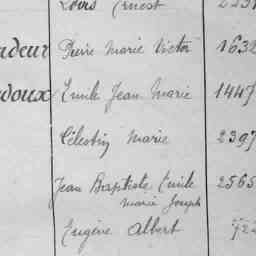 Louis Ernest
adeur Pierre Marie Victor 1632
doux Emile Jean Marie 1447
Célestin Marie 2397
Jean Baptiste Emile 2565
Marie Joseph
Eugène Albert 724